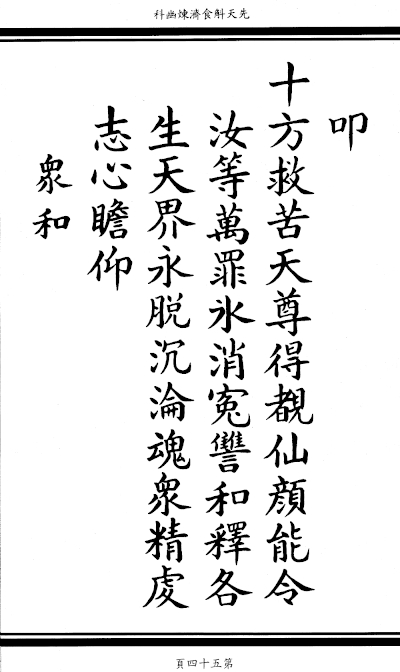 先天斛食濟煉幽科
叩
十方救苦天尊得覩仙顔能令
汝等萬罪氷消寃讐和釋各
生天界永脱沉淪魂衆精虔
志心瞻仰
衆和
第五十四頁